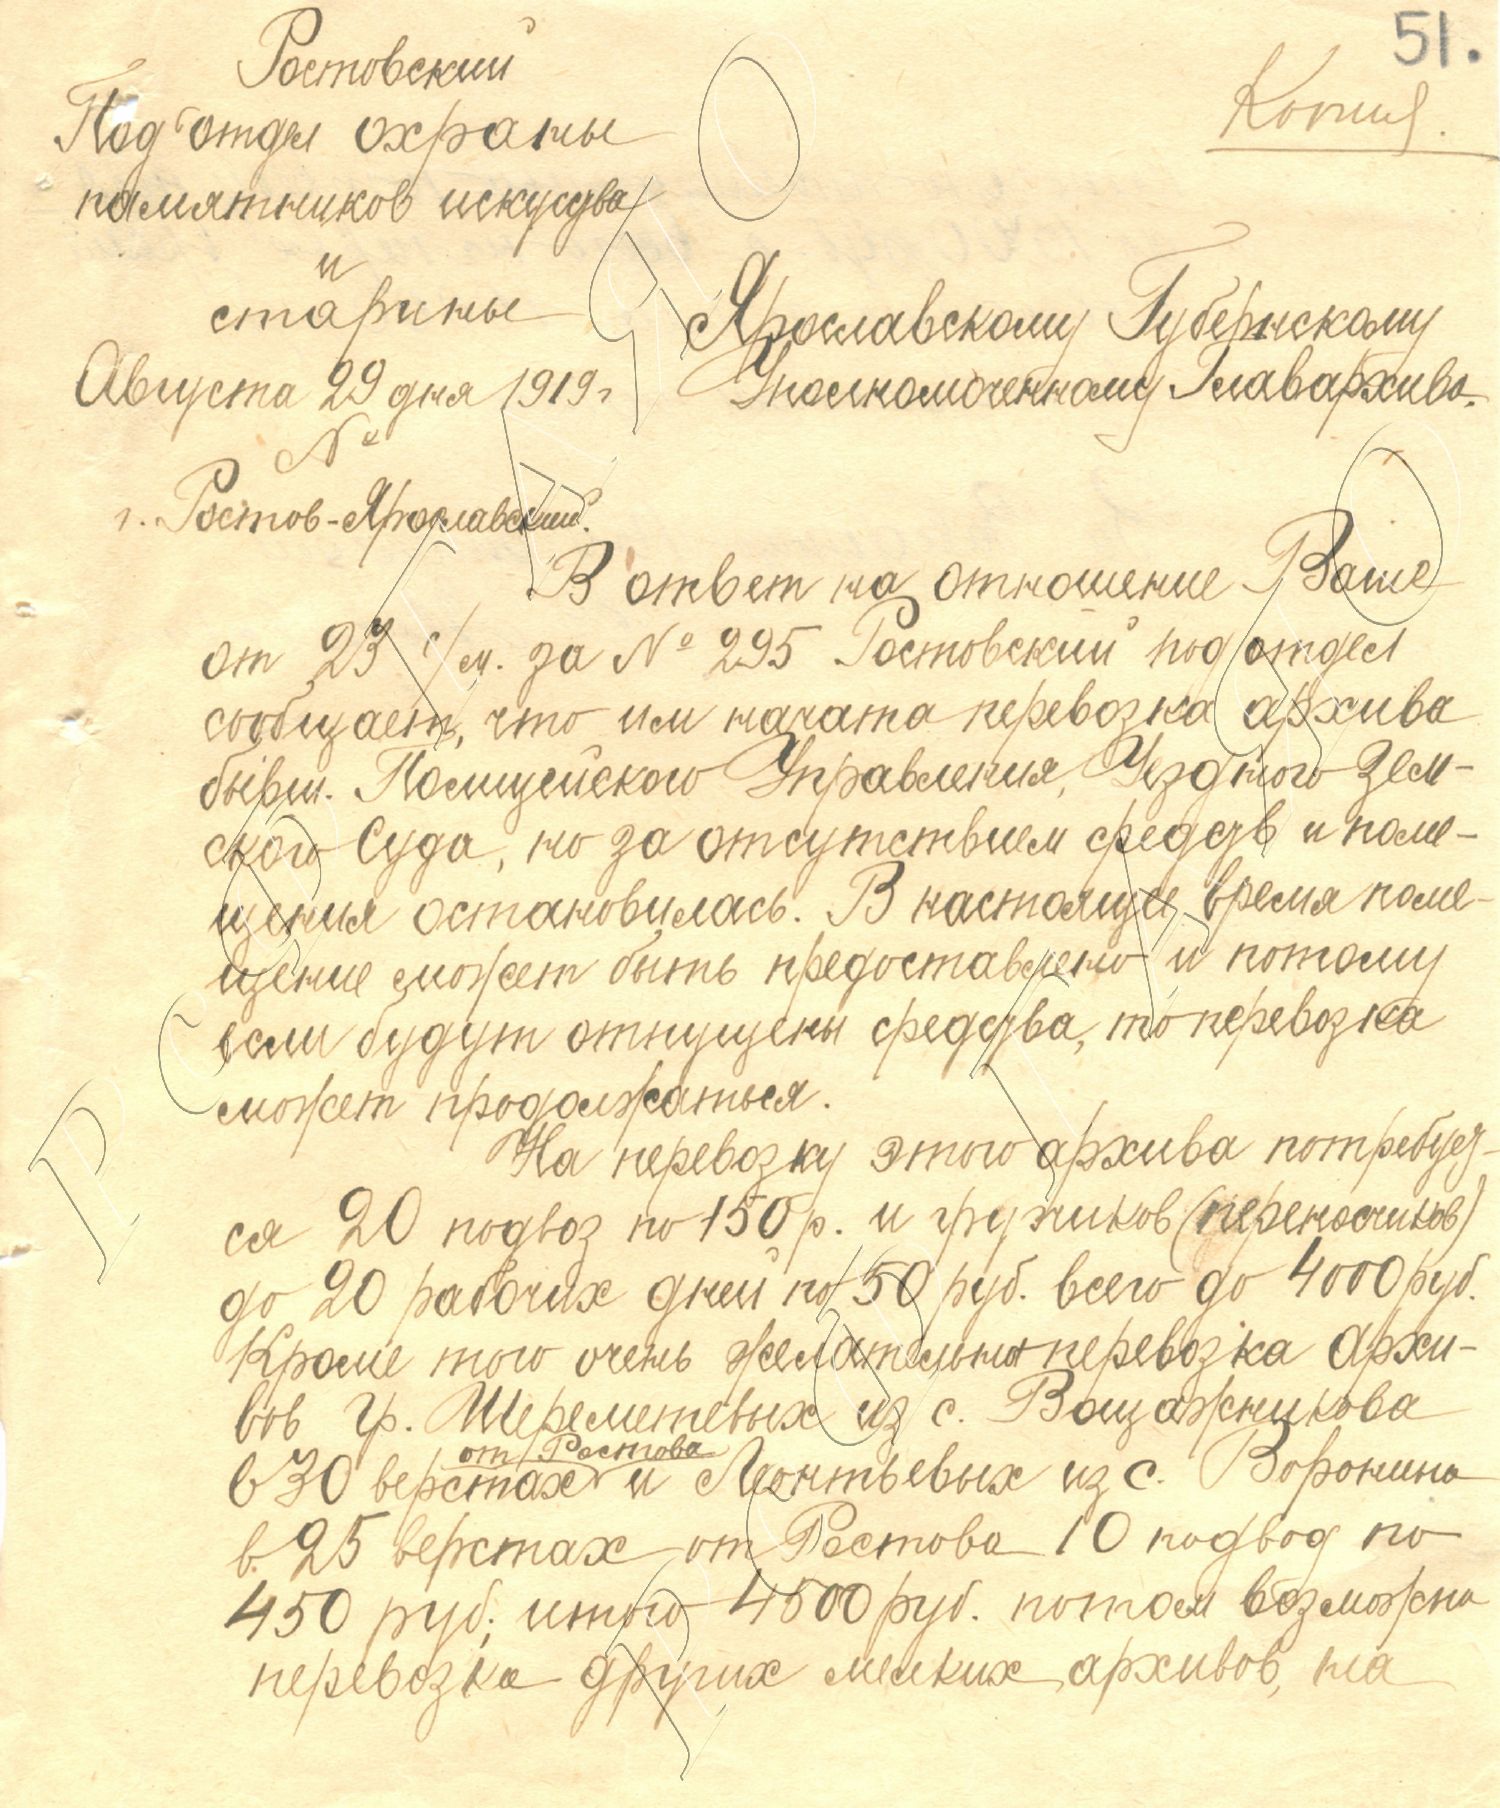 51.
Копия.
Ростовский
Подотдел охраны
памятников искусства
и
старины
Августа 29 дня 1919 г
№
г. Ростов-Ярославский.
Ярославскому Губернскому
Уполномоченному Главархива.
В ответ на отношение Ваше
от 23 с/м. за № 295 Ростовский подотдел
сообщает, что им начата перевозка архива
бывш. Полицейского Управления, Уездного Зем-
ского Суда, но за отсутствием средств и поме-
щения остановилась. В настоящее время поме-
щение может быть предоставлено и потому
если будут отпущены средства, то перевозка
может продолжаться.
На перевозку этого архива потребует-
ся 20 подвоз по 150 р. и грузчиков (переносчиков)
до 20 рабочих дней по 50 руб. всего до 4000 руб.
Кроме того очень желательна перевозка архи-
вов гр. Шереметевых из с. Вощажникова
в 30 верстах от Ростова и Леонтьевых из с. Воронина
в 25 верстах от Ростова 10 подвод по
450 руб; итого 4500 руб. потом возможна
перевозка других мелких архивов, на